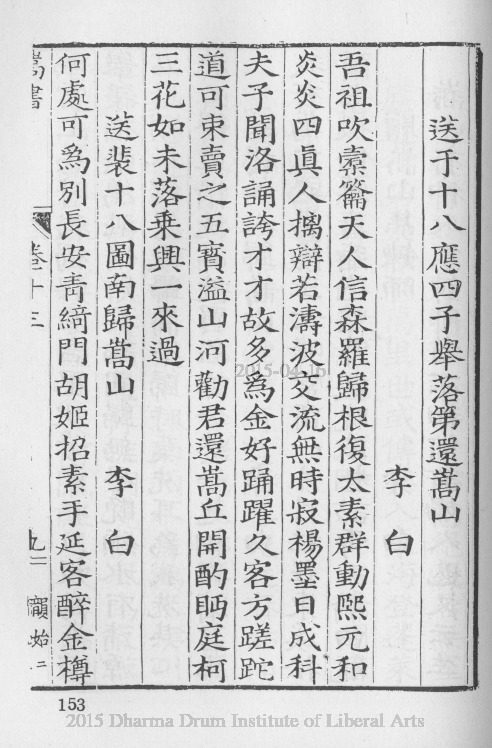 送于十八應四子舉落第還嵩山
李白
吾祖吹橐籥天人信森羅歸根復太素群動熙元和
炎炎四眞人摛辯若濤波交流無時寂楊墨日成科
夫子聞洛誦誇才才故多為金好踊躍久客方蹉跎
道可束賣之五寳溢山河勸君還嵩丘開酌眄庭柯
三花如未落乘興一來過
送裴十八圖南歸嵩山 李白
何處可爲別長安青綺門胡姬招素手延客醉金樽
嵩書 卷十三 九
153
2015-04-16
2015 Dharma Drum Institute of Liberal Arts